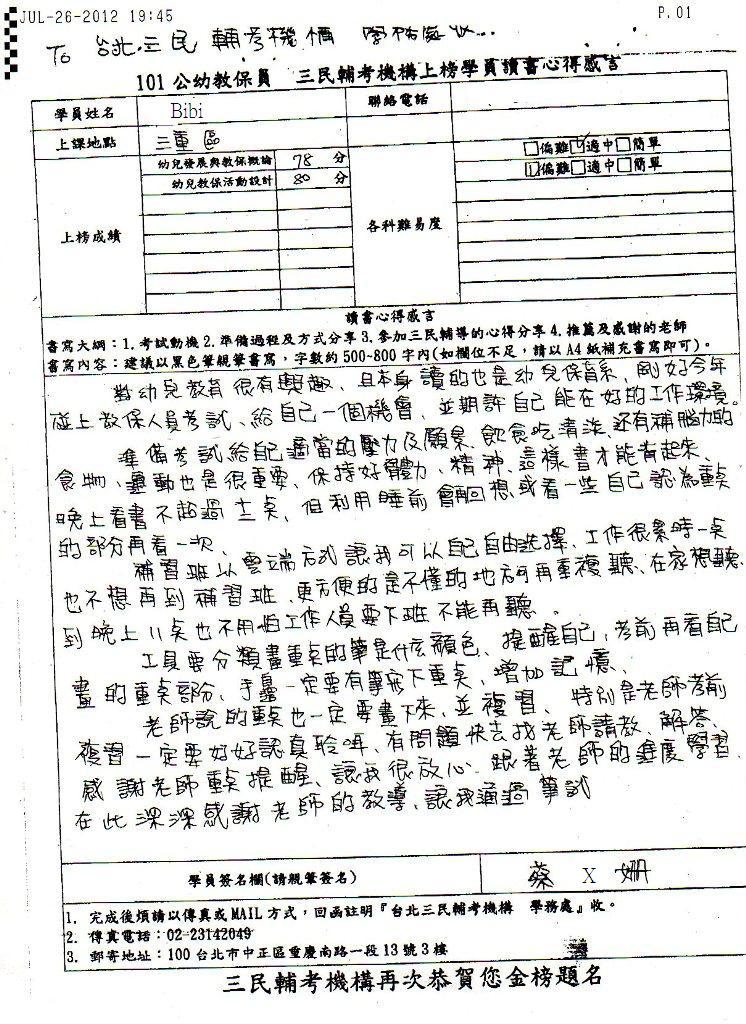 JUL-26-2012 19:45 P.01
To 台北三民輔考機構 學務處收...
101公幼教保員 三民輔考機構上榜學員讀書心得感言
學員姓名 Bibi 聯絡電話
上課地點 三重區
幼兒發展與教保概論 78 分 □偏難☑適中□簡單
幼兒教保活動設計 80 分 ☑偏難□適中□簡單
上榜成績 各科難易度
讀書心得感言
書寫大綱:1.考試動機 2.準備過程及方式分享 3.參加三民輔導的心得分享 4.推薦及感謝的老師
書寫內容:建議以黑色筆親筆書寫,字數約500~800字內(如欄位不足,請以A4紙補充書寫即可)。
對幼兒教育很有興趣、且本身讀的也是幼兒保育系,剛好今年
碰上教保人員考試、給自己一個機會、並期許自己能在好的工作環境。
準備考試給自己適當的壓力及願景、飲食吃清淡、還有補腦力的
食物、運動也是很重要、保持好體力、精神、這樣書才能看起來、
晚上看書不超過十二點、但利用睡前會再回想或看一些自己認為重點
的部分再看一次、
補習班以雲端方式讓我可以自己自由選擇、工作很累時一點
也不想再到補習班、更方便的是不懂的地方可再重複聽、在家想聽
到晚上11點也不用怕工作人員要下班不能再聽。
工具要分類畫重點的筆是什麼顏色、提醒自己,考前再看自己
畫的重點部分、手邊一定要有筆寫下重點、增加記憶、
老師說的重點也一定要畫下來、並複習、特別是老師考前
複習一定要好好認真聆聽、有問題快去找老師請教、解答、
感謝老師重點提醒、讓我很放心、跟著老師的進度學習
在此深深感謝老師的教導、讓我通過筆試
學員簽名欄(請親筆簽名) 蔡 X 姍
1. 完成後煩請以傳真或MAIL方式,回函註明『台北三民輔考機構 學務處』收。
2. 傳真電話:02-23142049
3. 郵寄地址:100台北市中正區重慶南路一段13號3樓
三民輔考機構再次恭賀您金榜題名